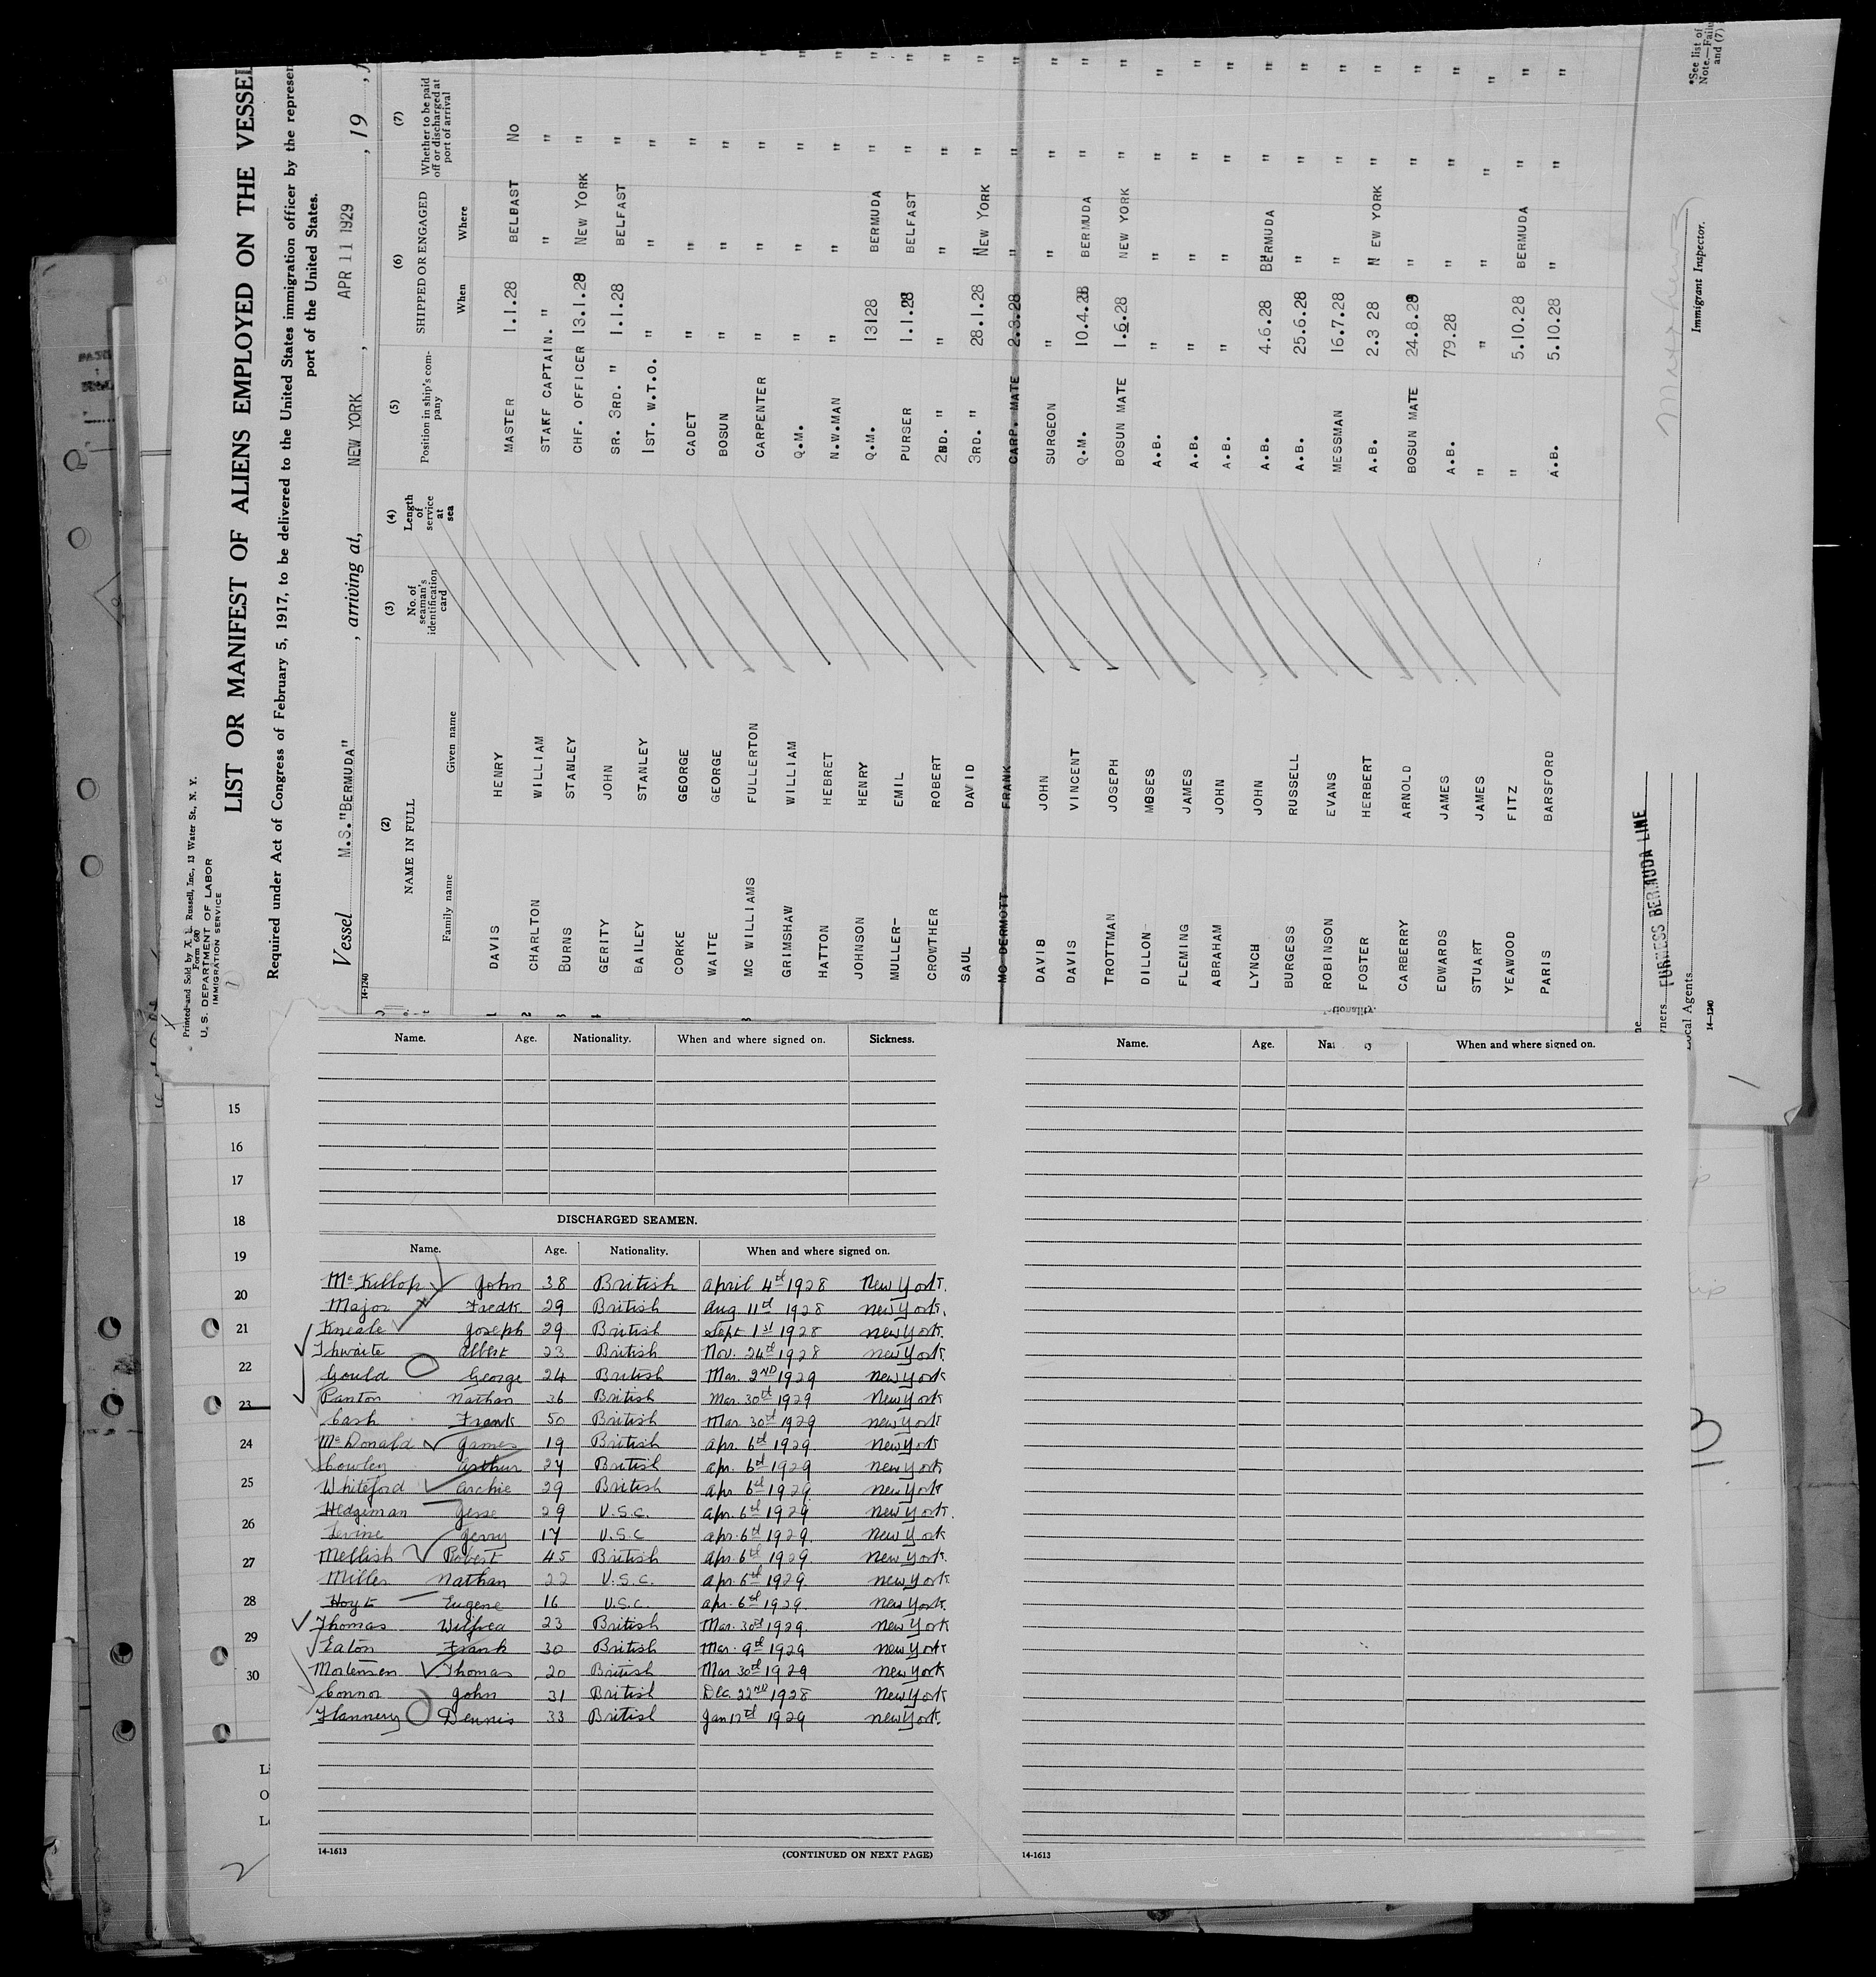 Printed and Sold by X. L. Russell, Inc., 13 Water St., N. Y.
Form 680
U. S. DEPARTMENT OF LABOR
IMMIGRATION SERVICE
LIST OR MANIFEST OF ALIENS EMPLOYED ON THE VESSEL
Required under Act of Congress of February 5, 1917, to be delivered to the United States immigration officer by the represen
port of the United States.
Vessel M.S."BERMUDA" , arriving at, NEW YORK , APR 11 1929 , 19
14-1240
(2) (3) (4) (5) (6) (7)
NAME IN FULL No. of seaman's identification card Length of service at sea Position in ship's company SHIPPED OR ENGAGED Whether to be paid off or discharged at port of arrival
Family name Given name When Where
DAVIS HENRY MASTER 1.1.28 BELBAST No
CHARLTON WILLIAM STAKF CAPTAIN. " " "
BURNS STANLEY CHF. OFFICER 13.1.28 NEW YORK "
GERITY JOHN SR. 3RD. " 1.1.28 BELFAST "
BAILEY STANLEY 1ST. W.T.O. " " "
CORKE GEORGE CADET " " "
WAITE GEORGE BOSUN " " "
MC WILLIAMS FULLERTON CARPENTER " " " "
GRIMSHAW WILLIAM Q.M. " " " "
HATTON HEBRET N.W.MAN " " " "
JOHNSON HENRY Q.M. 13128 BERMUDA " "
MULLER- EMIL PURSER 1.1.28 BELFAST " "
CROWTHER ROBERT 2ND. " " " " "
SAUL DAVID 3RD. " 28.1.28 NEW YORK " "
MC DERMOTT FRANK CARP. MATE 2.3.28 " " "
DAVIS JOHN SURGEON " " " "
DAVIS VINCENT Q.M. 10.4.28 BERMUDA " "
TROTTMAN JOSEPH BOSUN MATE 1.6.28 NEW YORK " "
DILLON MOSES A.B. " " " "
FLEMING JAMES A.B. " " " "
ABRAHAM JOHN A.B. " " " "
LYNCH JOHN A.B. 4.6.28 BERMUDA " "
BURGESS RUSSELL A.B. 25.6.28 " " "
ROBINSON EVANS MESSMAN 16.7.28 " " "
FOSTER HERBERT A.B. 2.3 28 N EW YORK " "
CARBERRY ARNOLD BOSUN MATE 24.8.28 " " "
EDWARDS JAMES A.B. 79.28 " " "
STUART JAMES " " " " "
YEAWOOD FITZ " 5.10.28 BERMUDA " "
PARIS BARSFORD A.B. 5.10.28 " " "
ners FURNESS BERMUDA LINE
ocal Agents
14-1240
Immigrant Inspector.
*See list of
Note.—Fail
and (7)
Name. Age. Nationality. When and where signed on. Sickness.
DISCHARGED SEAMEN.
Name. Age. Nationality. When and where signed on.
McKillop John 38 British April 4th 1928 New York.
Major Fredk 29 British Aug 11th 1928 New York.
Kneale Joseph 29 British Sept 1st 1928 New York.
Thwaite Albert 23 British Nov. 24th 1928 New York.
Gould George 24 British Mar. 2ND 1929 New York
Panton Nathan 36 British Mar. 30th 1929 New York
Cash Frank 50 British Mar. 30th 1929 New York
McDonald James 19 British Apr. 6th 1929. New York
Cowley Arthur 27 British Apr. 6th 1929 New York
Whiteford Archie 29 British Apr 6th 1929. New York
Hedgeman Jesse 29 U.S.C. Apr. 6th 1929 New York.
Levine Gerry 17 U.S.C Apr. 6th 1929. New York
Mellish Robert 45 British Apr. 6th 1929. New York.
Miller Nathan 22 U.S.C. Apr. 6th 1929. New York
Hoyt Eugene 16 U.S.C. Apr. 6th 1929. New York.
Thomas Wilfred 23 British Mar. 30th 1929. New York
Eaton Frank 30 British Mar. 9th 1929 New York
Mortensen Thomas 20 British Mar 30th 1929 New York
Connor John 31 British Dec. 22ND 1928 New York
Flannery Dennis 33 British Jan 12th 1929 New York.
14-1613 (CONTINUED ON NEXT PAGE)
Name. Age. Na y When and where signed on.
14-1613
15
16
17
18
19
20
21
22
23
24
25
26
27
28
29
30